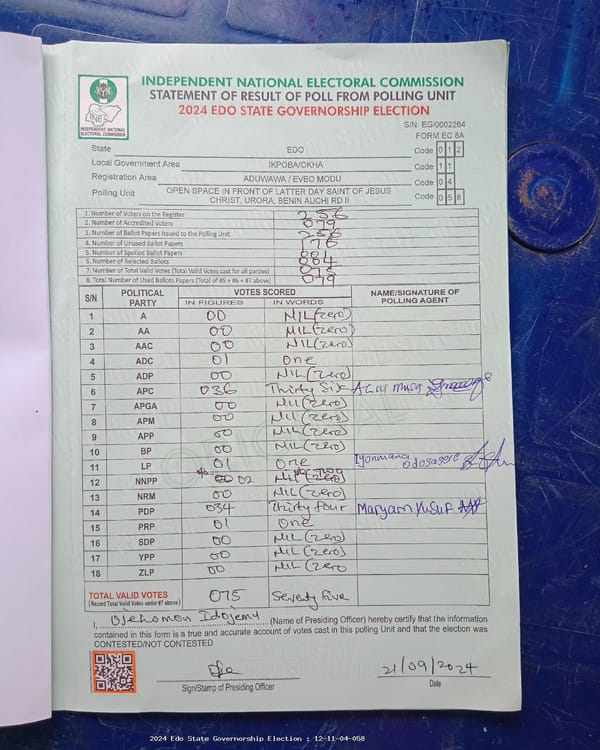 INDEPENDENT NATIONAL ELECTORAL COMMISSION
STATEMENT OF RESULT OF POLL FROM POLLING UNIT
2024 EDO STATE GOVERNORSHIP ELECTION
INEC
INDEPENDENT NATIONAL ELECTORAL COMMISSION
S/N: EG/0002264
FORM EC 8A
State EDO Code 0 1 2
Local Government Area IKPOBA/OKHA Code 1 1
Registration Area ADUWAWA / EVBO MODU Code 0 4
Polling Unit OPEN SPACE IN FRONT OF LATTER DAY SAINT OF JESUS CHRIST, URORA, BENIN AUCHI RD II Code 0 5 8
1. Number of Voters on the Register 256
2. Number of Accredited Voters 079
3. Number of Ballot Papers Issued to the Polling Unit 256
4. Number of Unused Ballot Papers 176
5. Number of Spoiled Ballot Papers
6. Number of Rejected Ballots 004
7. Number of Total Valid Votes (Total Valid Votes cast for all parties) 075
8. Total Number of Used Ballots Papers (Total of #5 + #6 + #7 above) 079
S/N POLITICAL PARTY VOTES SCORED NAME/SIGNATURE OF POLLING AGENT
IN FIGURES IN WORDS
1 A 00 NIL(zero)
2 AA 00 NIL(zero)
3 AAC 00 NIL(zero)
4 ADC 01 One
5 ADP 00 NIL(zero)
6 APC 036 Thirty Six Musa
7 APGA 00 NIL(zero)
8 APM 00 NIL(zero)
9 APP 00 NIL(zero)
10 BP 00 NIL(zero)
11 LP 01 One
12 NNPP 02 Two
13 NRM 00 NIL(zero)
14 PDP 034 Thirty four Maryam Yusuf
15 PRP 01 One
16 SDP 00 NIL(zero)
17 YPP 00 NIL(zero)
18 ZLP 00 NIL(zero)
TOTAL VALID VOTES 075 Seventy five
(Record Total Valid Votes under #7 above)
I, (Name of Presiding Officer) hereby certify that the information
contained in this form is a true and accurate account of votes cast in this polling Unit and that the election was
CONTESTED/NOT CONTESTED
21/09/2024
Sign/Stamp of Presiding Officer Date
2024 Edo State Governorship Election : 12-11-04-058